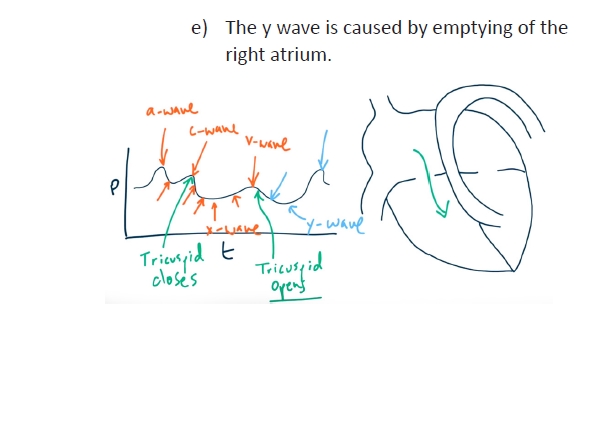 e) The y wave is caused by emptying of the
right atrium.
a-wave
c-wave
v-wave
P
x-wave
y-wave
t
Tricuspid
closes
Tricuspid
opens